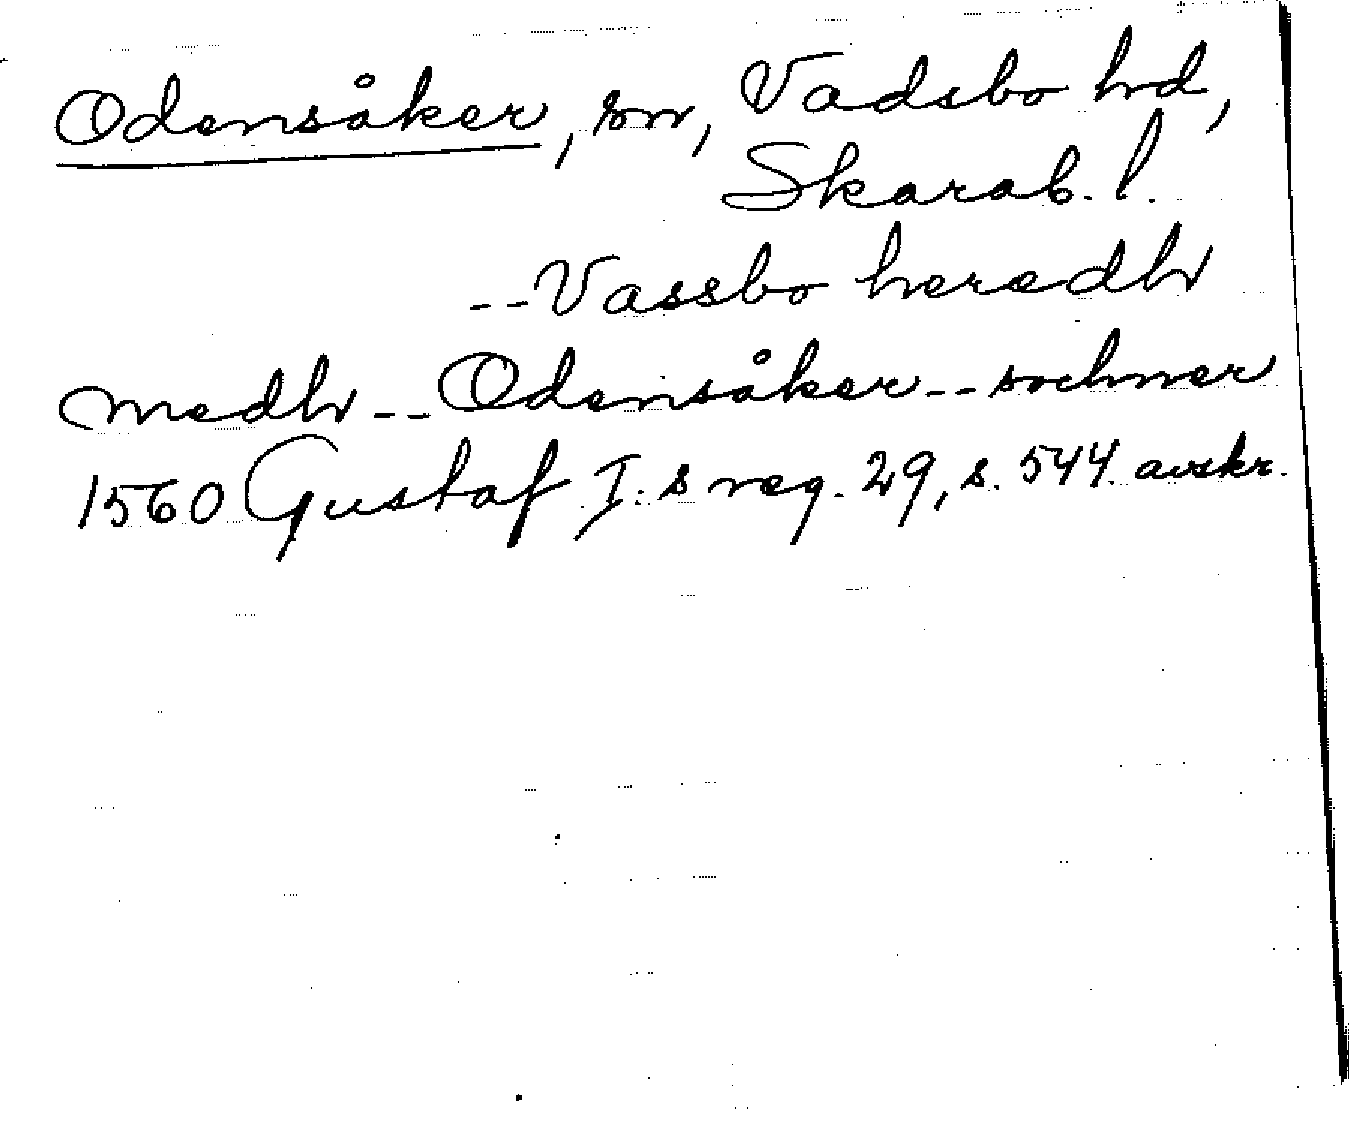 Odensåker, sn, Vadsbo hd,
Skarab. l.
--Vassbo heredh
medh--Odensåker--sochner
1560 Gustaf I:s reg. 29, s. 544. avskr.